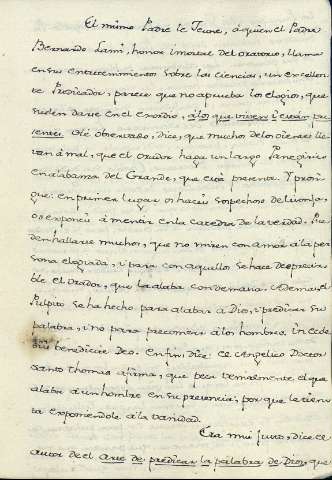 El mismo Padre le Jeune, á quien el Padre
Bernardo Lami, honor inmortal del oratorio, llama
en sus entretenimientos sobre las ciencias, un excelen
te Predicador, parece que no aprueba los elogios, que
suelen darse en el exordio, á los que viven i están pre
sentes. Hé observado, dice, que muchos de los oientes lle
van á mal, que el orador haga un largo Panegirico
en alabanza del Grande, que está presente. I prosi
gue: en primer lugar os haceis sospechoso de lisonja,
os exponeis á mentir en la catedra de la verdad. Pue
den hallarse muchos, que no miren con amor á la per
sona elogiada, i para con aquellos se hace despreciá
ble el orador, que la alaba con demasia. Ademas el
Pulpito se ha hecho para alabar a Dios, i predicar su
palabra, i no para preconizar á los hombres. In Eccle
siis benedicite Deo. En fin, dice el Angelico Doctor
Santo Thomas afirma, que peca venialmente el que
alaba a un hombre en su presencia; por que le tien
ta exponiendole á la vanidad.
Era mui justo, dice el
autor de el Arte de predicar la palabra de Dios, que